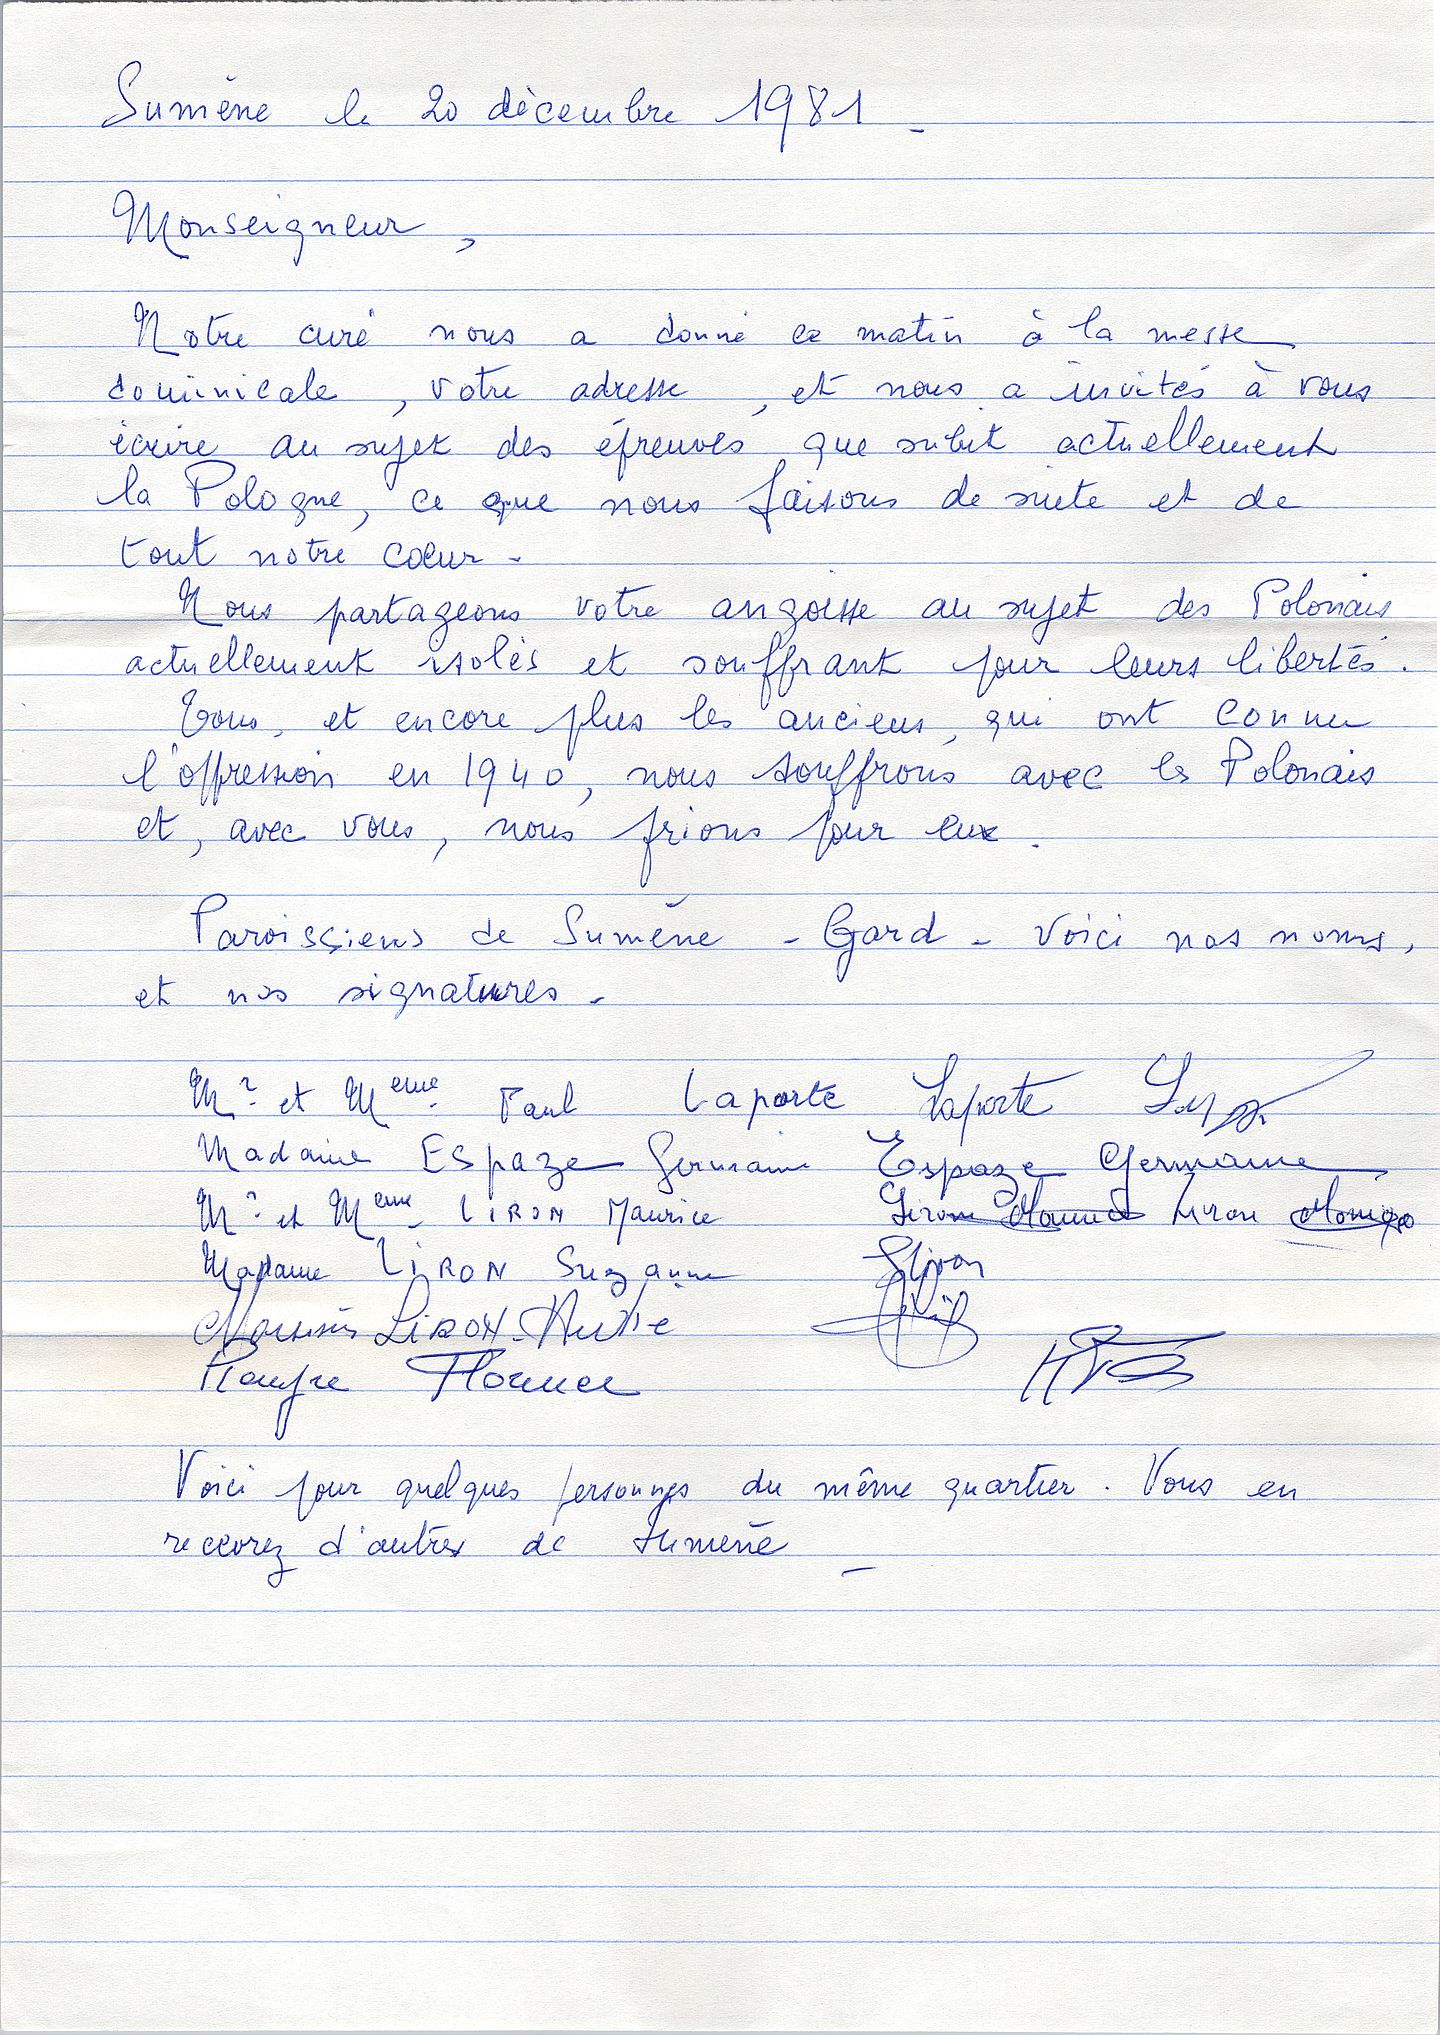 Sumène le 20 décembre 1981 -
Monseigneur,
Notre curé nous a donné ce matin à la messe
dominicale, votre adresse, et nous a invités à vous
écrire au sujet des épreuves que subit actuellement
la Pologne, ce que nous faisons de suite et de
tout notre cœur -
Nous partageons votre angoisse au sujet des Polonais
actuellement isolés et souffrant pour leurs libertés.
Tous, et encore plus les anciens, qui ont connu
l'oppression en 1940, nous souffrons avec les Polonais
et, avec vous, nous prions pour eux.
Paroissiens de Sumène - Gard - Voici nos noms,
et nos signatures -
Mr. et Meme. Paul Laporte Laporte
Madame Espaze Germaine Espaze Germaine
Mr. et Meme. LIRON Maurice Liron Maurice Liron
Madame LIRON Suzanne SLiron
LIRON
Florence
Voici pour quelques personnes du même quartier. Vous en
recevrez d'autres de Sumène -